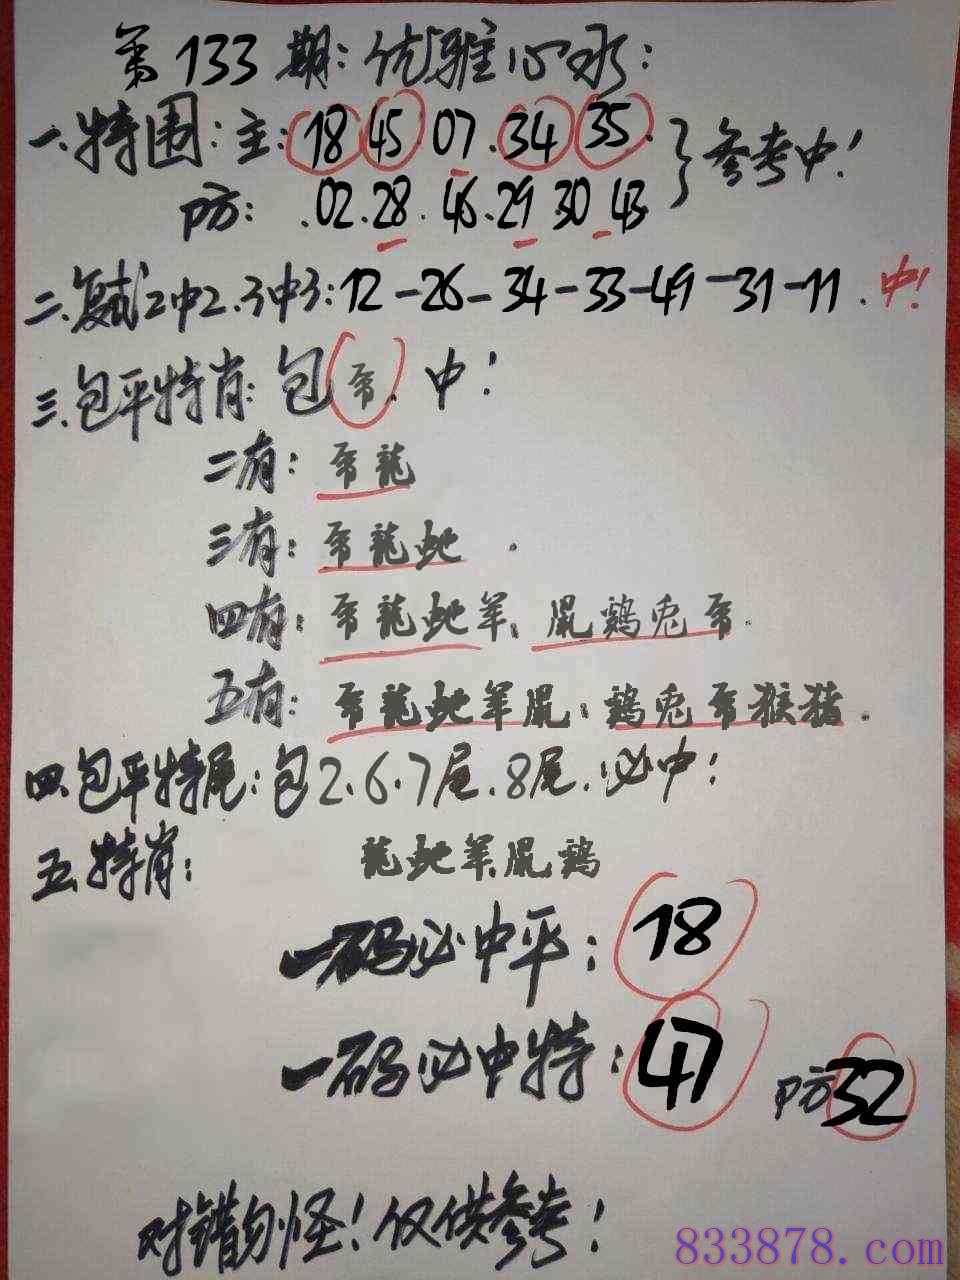 第133期:优雅心水:
一.特围:主:18 45.07.34 35.
参考中!
防:.02.28.46.29 30 43
二.复式2中2.3中3:12-26-34-33-49-31-11.中!
三.包平特肖:包帝.中!
二有:帝龍
三有:帝龍虵.
四有:帝龍虵羊、鼠鷄兎帝.
五有:帝龍虵羊鼠:鷄兎帝猴猪.
四.包平特尾:包2.6.7尾.8尾.必中!
五.特肖:龍虵羊鼠鷄
一码必中平:18
一码必中特:47 防32
对错勿怪!仅供参考!
833878.com